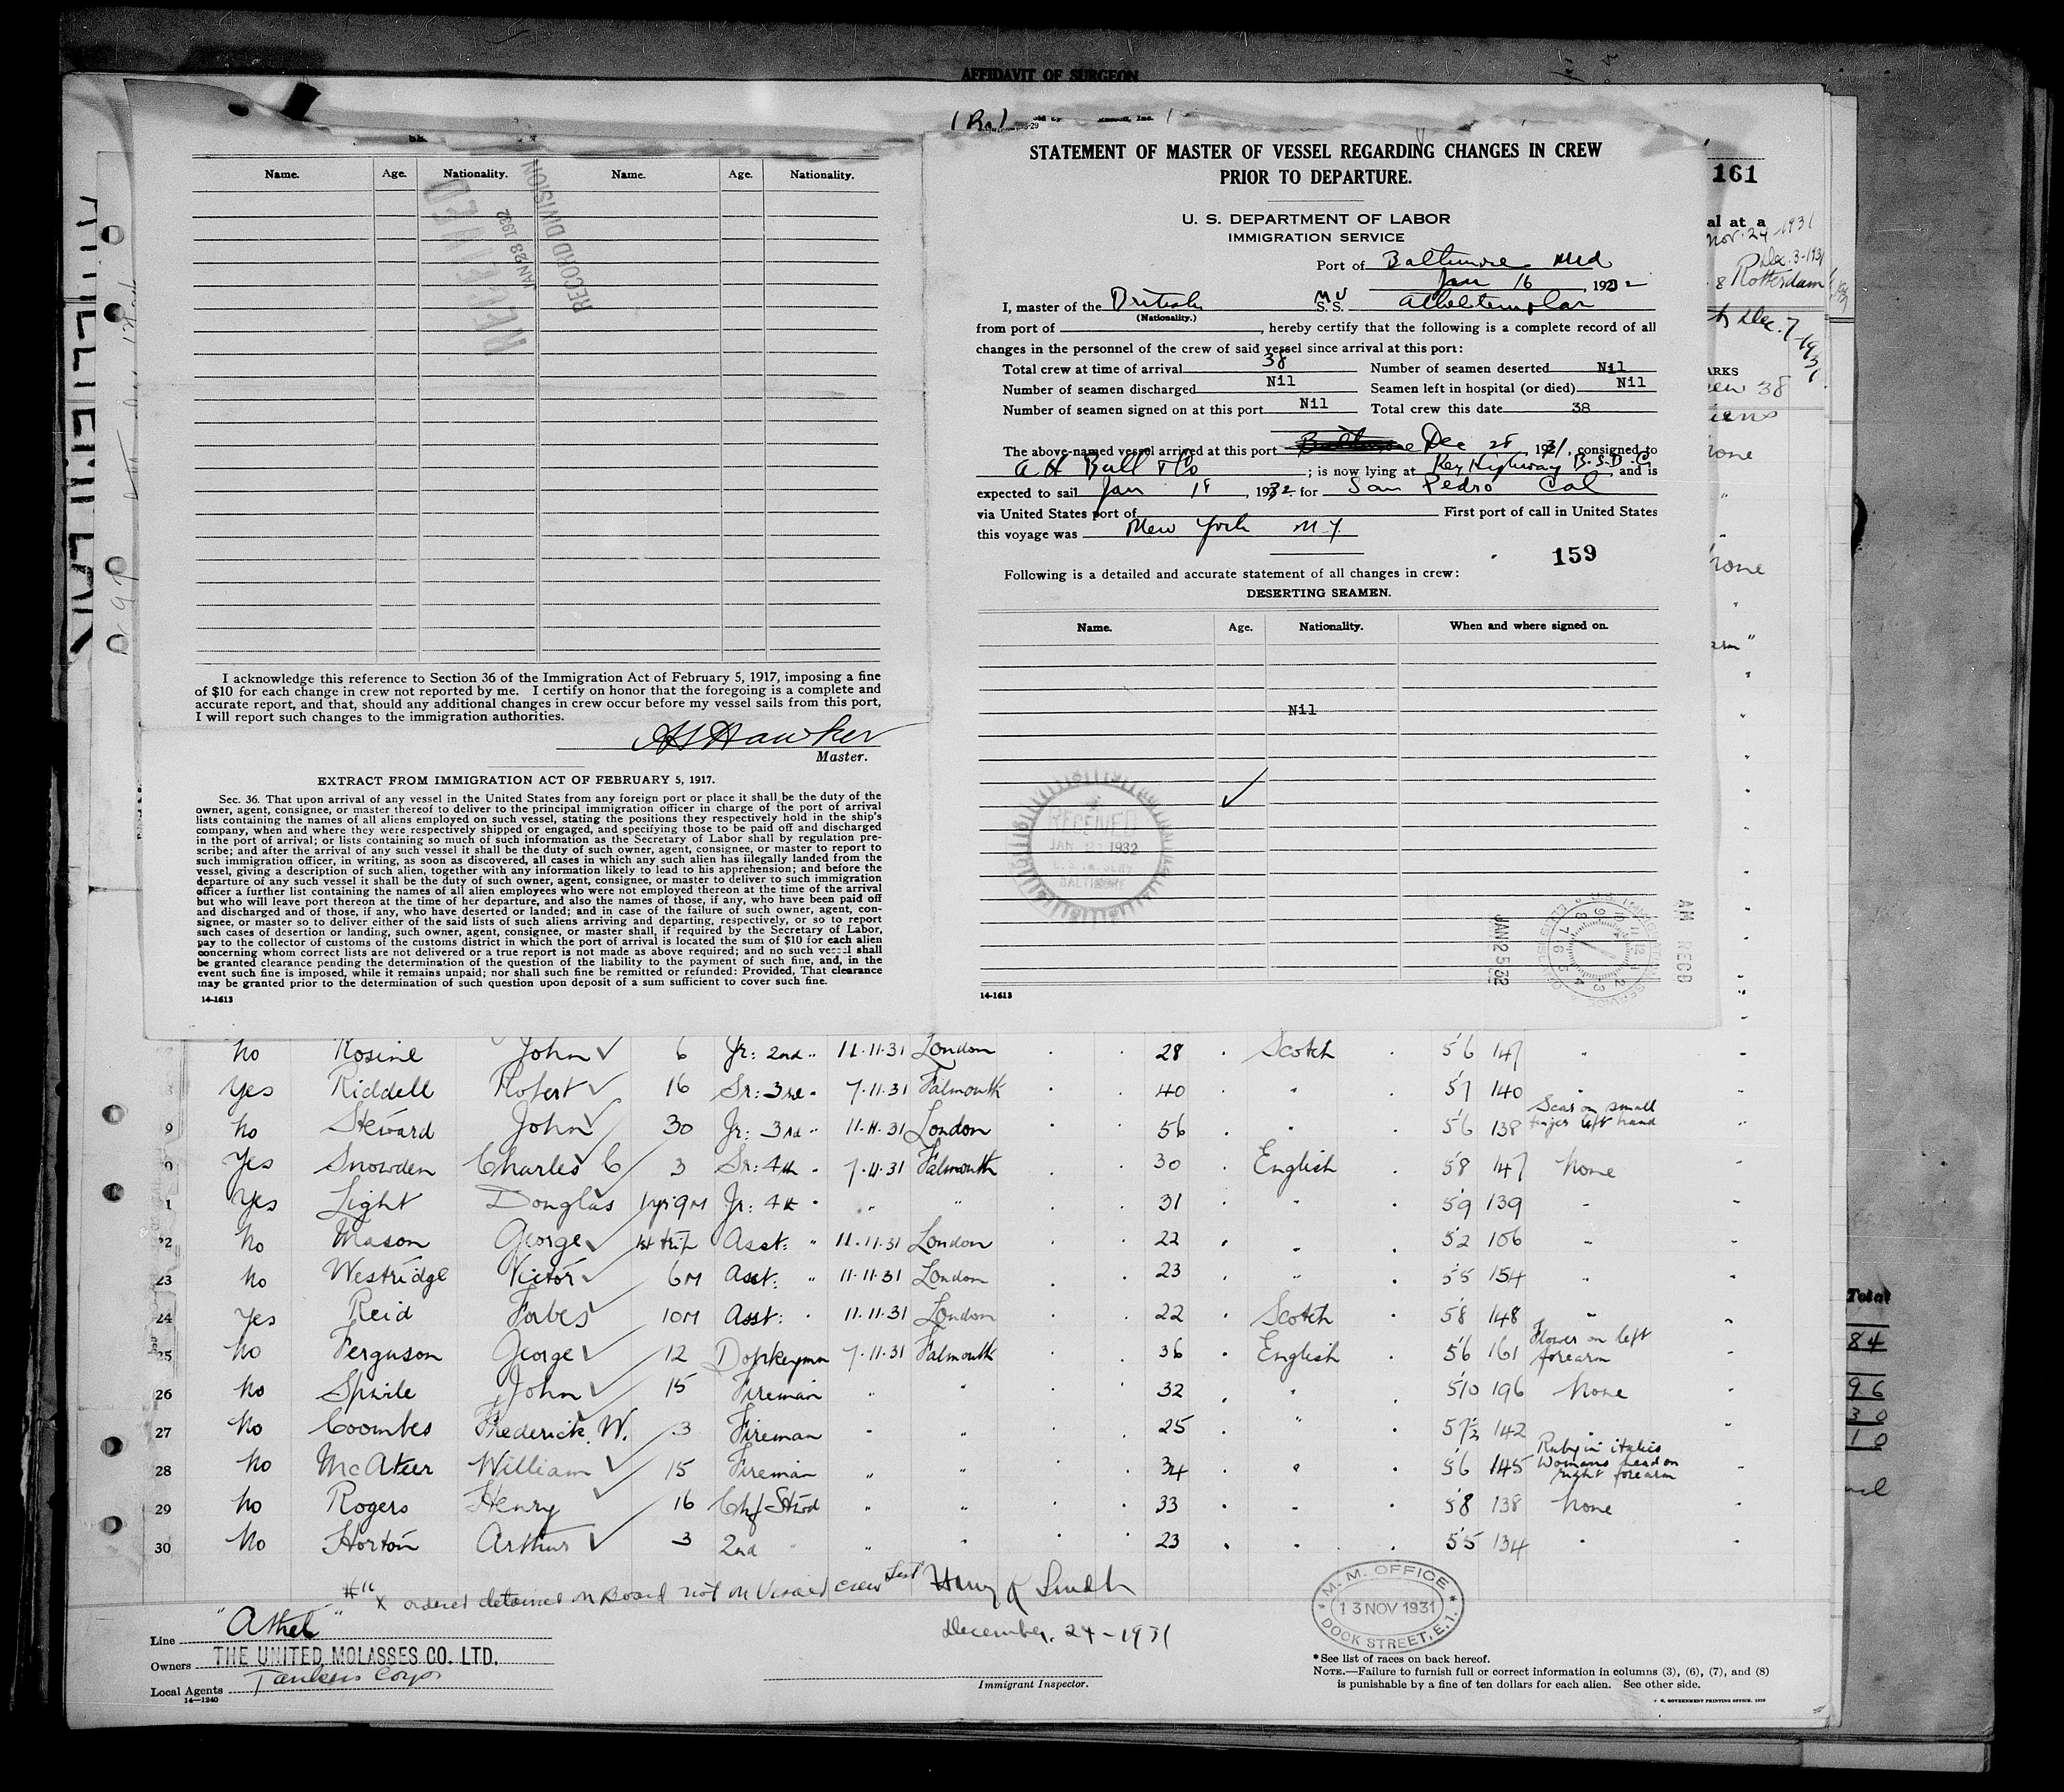 AFFIDAVIT OF SURGEON
Name. Age. Nationality. Name. Age. Nationality.
RECEIVED
JAN 23 1932
RECORD DIVISION
I acknowledge this reference to Section 36 of the Immigration Act of February 5, 1917, imposing a fine
of $10 for each change in crew not reported by me. I certify on honor that the foregoing is a complete and
accurate report, and that, should any additional changes in crew occur before my vessel sails from this port,
I will report such changes to the immigration authorities.
Hawker
Master.
EXTRACT FROM IMMIGRATION ACT OF FEBRUARY 5, 1917.
Sec. 36. That upon arrival of any vessel in the United States from any foreign port or place it shall be the duty of the
owner, agent, consignee, or master thereof to deliver to the principal immigration officer in charge of the port of arrival
lists containing the names of all aliens employed on such vessel, stating the positions they respectively hold in the ship's
company, when and where they were respectively shipped or engaged, and specifying those to be paid off and discharged
in the port of arrival; or lists containing so much of such information as the Secretary of Labor shall by regulation pre-
scribe; and after the arrival of any such vessel it shall be the duty of such owner, agent, consignee, or master to report to
such immigration officer, in writing, as soon as discovered, all cases in which any such alien has illegally landed from the
vessel, giving a description of such alien, together with any information likely to lead to his apprehension; and before the
departure of any such vessel it shall be the duty of such owner, agent, consignee, or master to deliver to such immigration
officer a further list containing the names of all alien employees who were not employed thereon at the time of the arrival
but who will leave port thereon at the time of her departure, and also the names of those, if any, who have been paid off
and discharged and of those, if any, who have deserted or landed; and in case of the failure of such owner, agent, con-
signee, or master so to deliver either of the said lists of such aliens arriving and departing, respectively, or so to report
such cases of desertion or landing, such owner, agent, consignee, or master shall, if required by the Secretary of Labor,
pay to the collector of customs of the customs district in which the port of arrival is located the sum of $10 for each alien
concerning whom correct lists are not delivered or a true report is not made as above required; and no such vessel shall
be granted clearance pending the determination of the question of the liability to the payment of such fine, and, in the
event such fine is imposed, while it remains unpaid; nor shall such fine be remitted or refunded: Provided, That clearance
may be granted prior to the determination of such question upon deposit of a sum sufficient to cover such fine.
14-1613
STATEMENT OF MASTER OF VESSEL REGARDING CHANGES IN CREW
PRIOR TO DEPARTURE.
U. S. DEPARTMENT OF LABOR
IMMIGRATION SERVICE
Port of Baltimore Md
Jan 16, 1932
I, master of the British M V S. S. Atheltemplar
(Nationality.)
from port of , hereby certify that the following is a complete record of all
changes in the personnel of the crew of said vessel since arrival at this port:
Total crew at time of arrival 38 Number of seamen deserted Nil
Number of seamen discharged Nil Seamen left in hospital (or died) Nil
Number of seamen signed on at this port Nil Total crew this date 38
The above-named vessel arrived at this port Dec 28, 1931, consigned to
A H Bull & Co ; is now lying at Key Highway B.S.D.C., and is
expected to sail Jan 18, 1932 for San Pedro Cal
via United States port of First port of call in United States
this voyage was New York N.Y.
159
Following is a detailed and accurate statement of all changes in crew:
DESERTING SEAMEN.
Name. Age. Nationality. When and where signed on.
Nil
RECEIVED
JAN 1932
BALTIMORE
JAN 25 32
AM RECD
14-1613
161
al at a
Nov. 24-1931
Dec. 3-1931
8 Rotterdam
Dec. 7-1931
ARKS
38
None
Total
84
96
30
10
No Rosine John 6 Jr: 2nd " 11.11.31 London 28 Scotch 5'6 147 "
Yes Riddell Robert 16 Sr: 3rd " 7.11.31 Falmouth 40 " 5'7 140 "
9 No Steward John 30 Jr: 3rd " 11.11.31 London 56 " 5'6 138 Scar on small finger left hand
0 Yes Snowden Charles C 3 Sr: 4th " 7.11.31 Falmouth 30 English 5'8 147 None
1 Yes Light Douglas 1yr 9M Jr: 4th " " " 31 " 5'9 139 "
22 No Mason George 1st trip Asst: " 11.11.31 London 22 " 5'2 106 "
23 No Westridge Victor 6M Asst: " 11.11.31 London 23 " 5'5 154 "
24 Yes Reid Forbes 10M Asst: " 11.11.31 London 22 Scotch 5'8 148 "
25 No Ferguson George 12 Donkeyman 7.11.31 Falmouth 36 English 5'6 161 Flower on left forearm
26 No John 15 Fireman " " 32 " 5'10 196 None
27 No Coombes Frederick. W. 3 Fireman " " 25 " 5'7½ 142 "
28 No McAteer William 15 Fireman " " 34 " 5'6 145 Ruby in italics Womans head on right forearm
29 No Rogers Henry 16 Chf Stwd " " 33 " 5'8 138 None
30 No Horton Arthur 3 2nd " " " 23 " 5'5 134 "
X ordered detained on Board not on Visaed crew List Harry R Smith
December. 24-1931
M. M. OFFICE
13 NOV 1931
DOCK STREET, E. 1.
Line "Athel"
Owners THE UNITED MOLASSES CO. LTD.
Local Agents Tankers Corp
14-1240
Immigrant Inspector.
*See list of races on back hereof.
NOTE.—Failure to furnish full or correct information in columns (3), (6), (7), and (8)
is punishable by a fine of ten dollars for each alien. See other side.